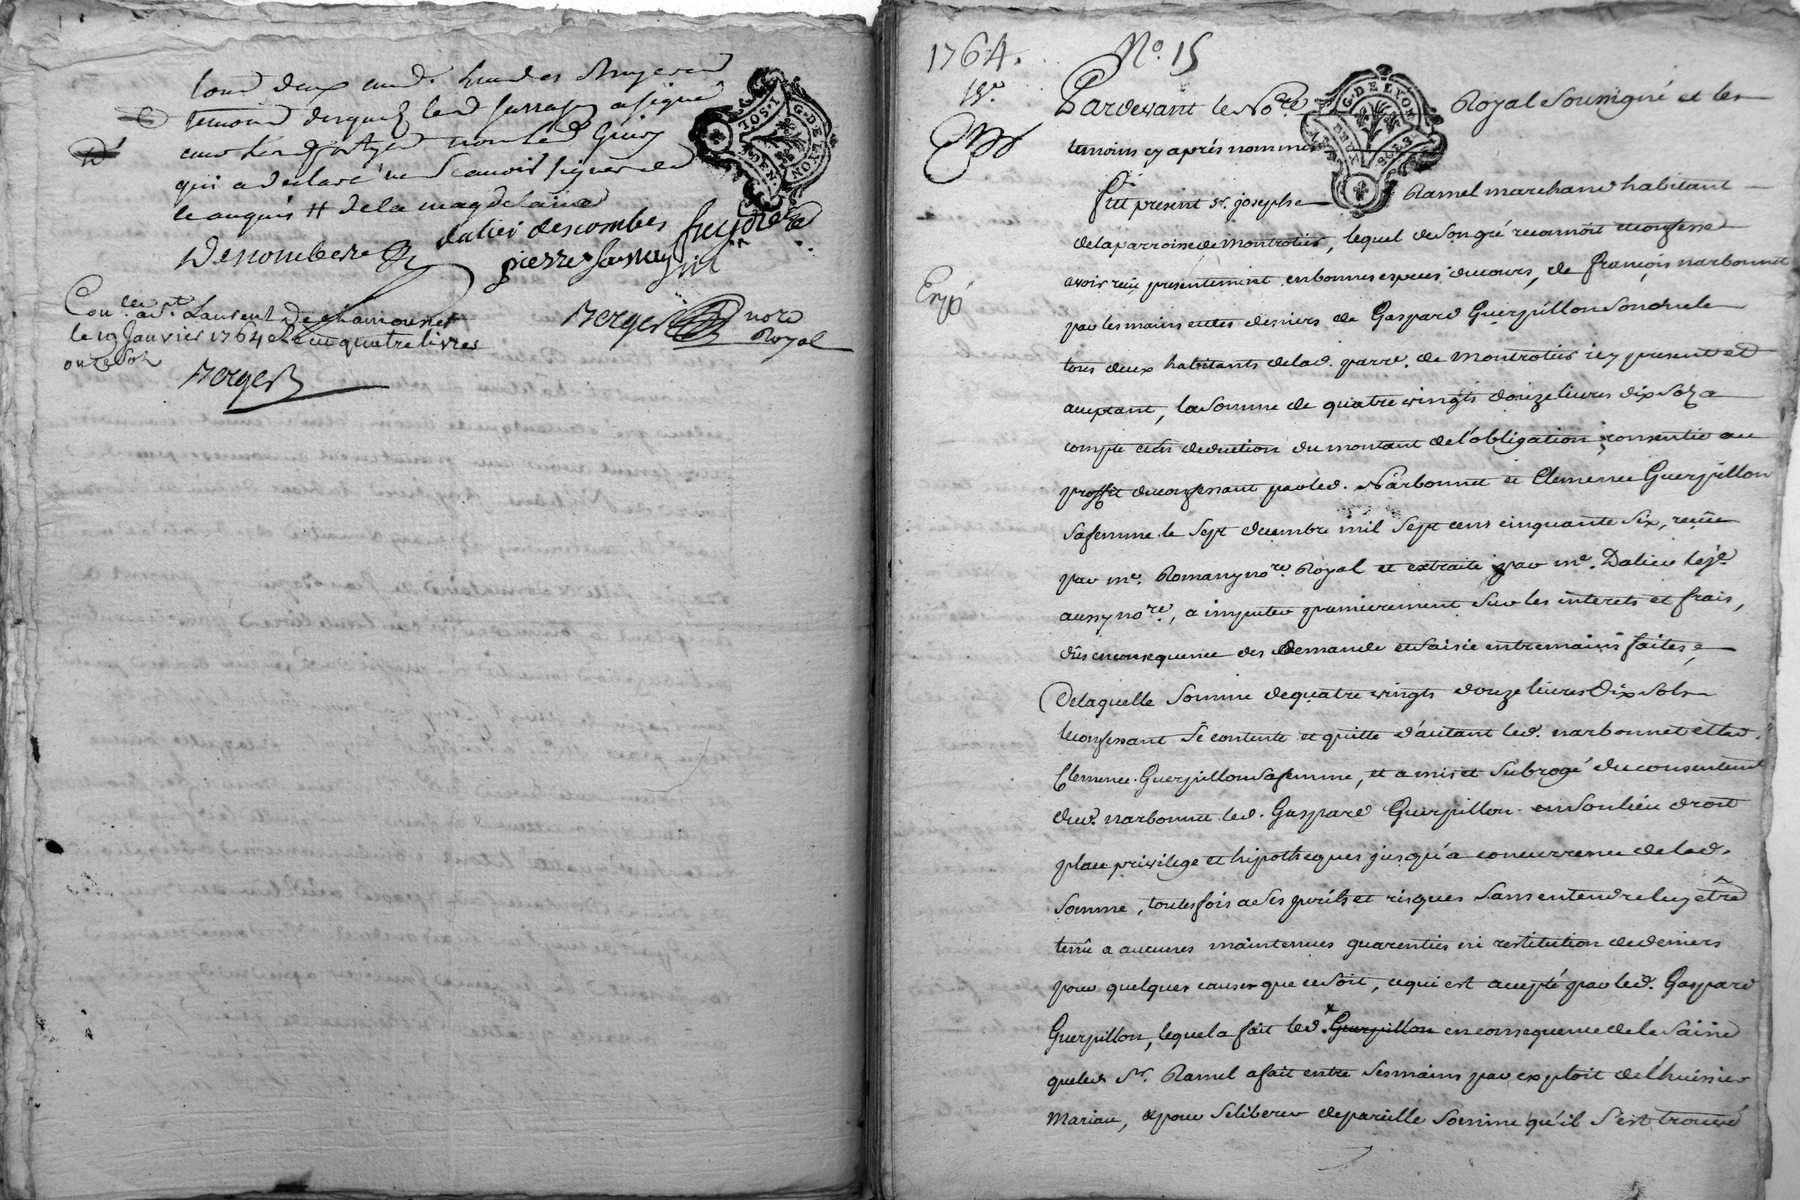 tous deux aud.
temoins desquels led Sarrasin a signé
avec les parties non led
qui a declaré ne scavoir signer de
ce enquis # de la magdelaine
Descombes
dalier descombes
pierre Sarrasin
Con.lé à St. Laurent de chamousset
le 19 Janvier 1764 Recu quatre livres
onze sols
Berger
Berger nore
Royal
G. DE LYON
1764.
No. 15
Pardevant le No.re Royal Soussigné et les
temoins cy aprés nommés
fut present sr. joseph Ramel marchand habitant
de la parroisse de montrotier, lequel de son gré reconnoit et confesse
avoir reçu presentement en bonnes especes du cours, de françois narbonnet
par les mains et des deniers de Gaspard Guerpillon son oncle
tous deux habitants de lad. parre. de montrotier icy present et
acceptant, la somme de quatre vingts douze livres dix sols a
compte et en deduction du montant de l'obligation consentie au
proffit du confessant par led. Narbonnet et Clemence Guerpillon
sa femme le sept decembre mil sept cens cinquante six, reçüe
par me. Romany nore. Royal et extraite par me. Dalier
aussy nore, a imputer premierement sur les interets et frais,
dûs en consequence des demande et saisie entremains faites,
De laquelle somme de quatre vingts douze livres dix sols
le confessant se contente et quitte d'autant led. narbonnet et lad.
Clemence Guerpillon sa femme, et a mis et subrogé du consentement
dud. narbonnet led. Gaspard Guerpillon en son lieu droit
place privilege et hipotheques jusqu'a concurrence de lad.
somme, toutesfois a ses perils et risques sans entendre luy être
tenu a aucunes maintenues guarenties ni restitution de deniers
pour quelques causes que ce soit, ce qui est accepté par led. Gaspard
Guerpillon, lequel a fait led. Guerpillon en consequence de la saisie
que led. Sr. Ramel a fait entre ses mains par exploit de l'huissier
Mariau, & pour se liberer de pareille somme qu'il s'est trouvé
Expé